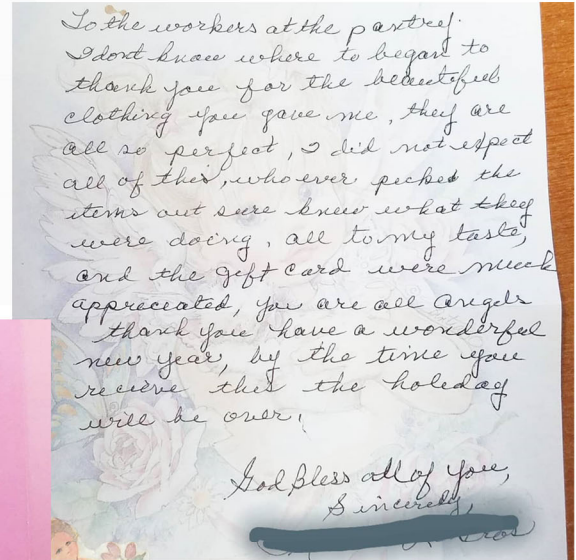 To the workers at the pantry.
I dont know where to began to
thank you for the beautiful
clothing you gave me, they are
all so perfect, I did not expect
all of this, who ever picked the
items out sure knew what they
were doing, all to my taste,
and the gift card were much
appreciated, you are all angels
thank you have a wonderful
new year, by the time you
recieve this the holiday
will be over,
God Bless all of you,
Sincerely,